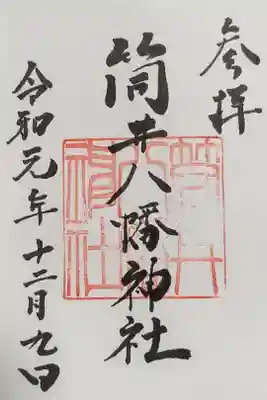 参拝
筒井八幡神社
令和元年十二月九日